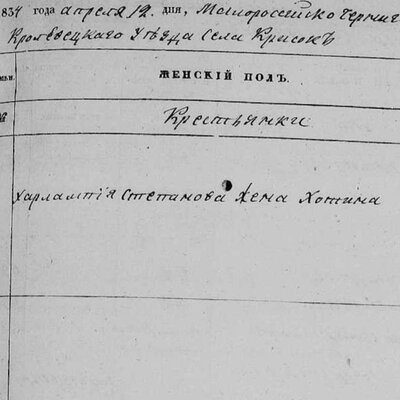 1834 года апреля 12 дня, Малороссийско Черниг
Кролевецкаго Уѣзда Села Крисокъ
ЖЕНСКІЙ ПОЛЪ.
Крестьянки
Харлампія Степанова жена